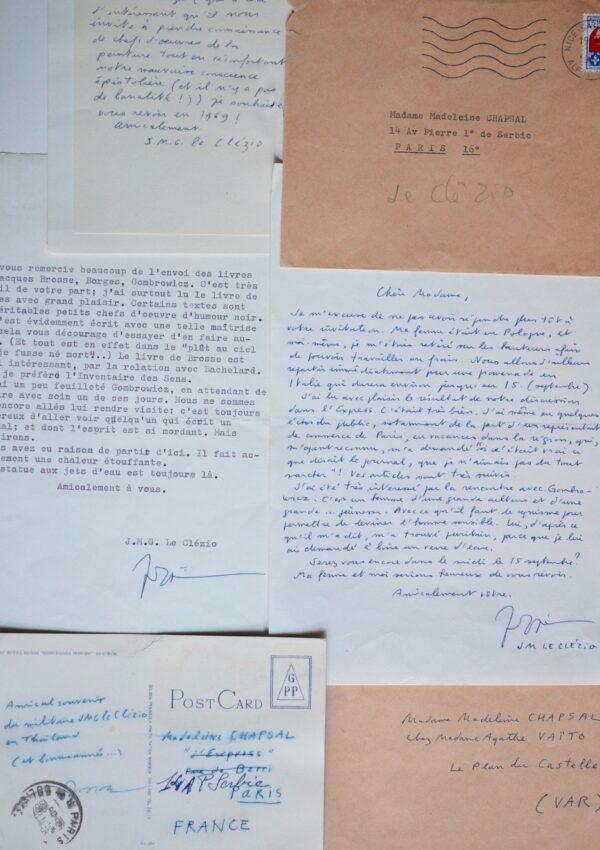 d'intéressant qu'il nous
invite à prendre connaissance
de chefs d'oeuvres de la
peinture tout en réconfortant
notre mauvaise conscience
épistolière (et il n'y a pas
de banalité !)) je souhaite
vous revoir en 1969 !
Amicalement
J.M.G. le Clézio
NICE
Madame Madeleine CHAPSAL
14 Av Pierre 1° de Serbie
PARIS 16°
Le Clézio
vous remercie beaucoup de l'envoi des livres
acques Brosse, Borges, Gombrowicz. C'est très
il de votre part; j'ai surtout lu le livre de
es avec grand plaisir. Certains textes sont
éritables petits chefs d'oeuvre d'humour noir.
'est évidemment écrit avec une telle maîtrise
ela vous décourage d'essayer d'en faire au-
. (Et tout est en effet dans le "plût au ciel
je fusse né mort"..) Le livre de Brosse est
i intéressant, par la relation avec Bachelard.
je préfère l'Inventaire des Sens.
i un peu feuilleté Gombrowicz, en attendant de
ire avec soin un de ces jours. Nous ne sommes
encore allés lui rendre visite; c'est toujours
reux d'aller voir quelqu'un qui écrit un
al; et dont l'esprit est si mordant. Mais
irons.
s avez eu raison de partir d'ici. Il fait ac-
lement une chaleur étouffante.
statue aux jets d'eau est toujours là.
Amicalement à vous.
J.M.G. Le Clézio
Chère Madame,
Je m'excuse de ne pas avoir répondu plus tôt à
votre invitation. Ma femme était en Pologne, et
moi-même, je m'étais retiré sur les hauteurs afin
de pouvoir travailler au frais. Nous allons d'ailleurs
repartir immédiatement pour une promenade en
Italie qui durera environ jusque au 15 (septembre)
J'ai lu avec plaisir le résultat de notre discussion
dans l'Express. C'était très bien. J'ai même eu quelques
échos du public, notamment de la part d'un représentant
de commerce de Paris, en vacances dans la région, qui,
m'ayant reconnu, m'a demandé "si c'était vrai ce
que disait le journal, que je n'aimais pas du tout
marcher"! Vos articles sont très suivis
J'ai été très intéressé par la rencontre avec Gombro-
wicz. C'est un homme d'une grande culture et d'une
grande ... jeunesse. Avec ce qu'il faut de cynisme pour
permettre de deviner l'homme sensible. Lui, d'après ce
qu'il m'a dit, m'a trouvé puritain, parce que je lui
ai demandé à boire un verre d'eau.
Serez vous encore dans le midi le 15 septembre?
Ma femme et moi serions heureux de vous revoir.
Amicalement votre.
JM LE CLÉZIO
POST CARD
GPP
Amical souvenir
du militaire JMG le Clézio
en Thaïland
(et bonne année...)
Madeleine CHAPSAL
"l'Express"
rue de Berri
14 A P Serbie
PARIS
FRANCE
PARIS
Madame Madeleine CHAPSAL
Chez Madame Agathe VAÏTO
Le Plan du Castelle
(VAR)